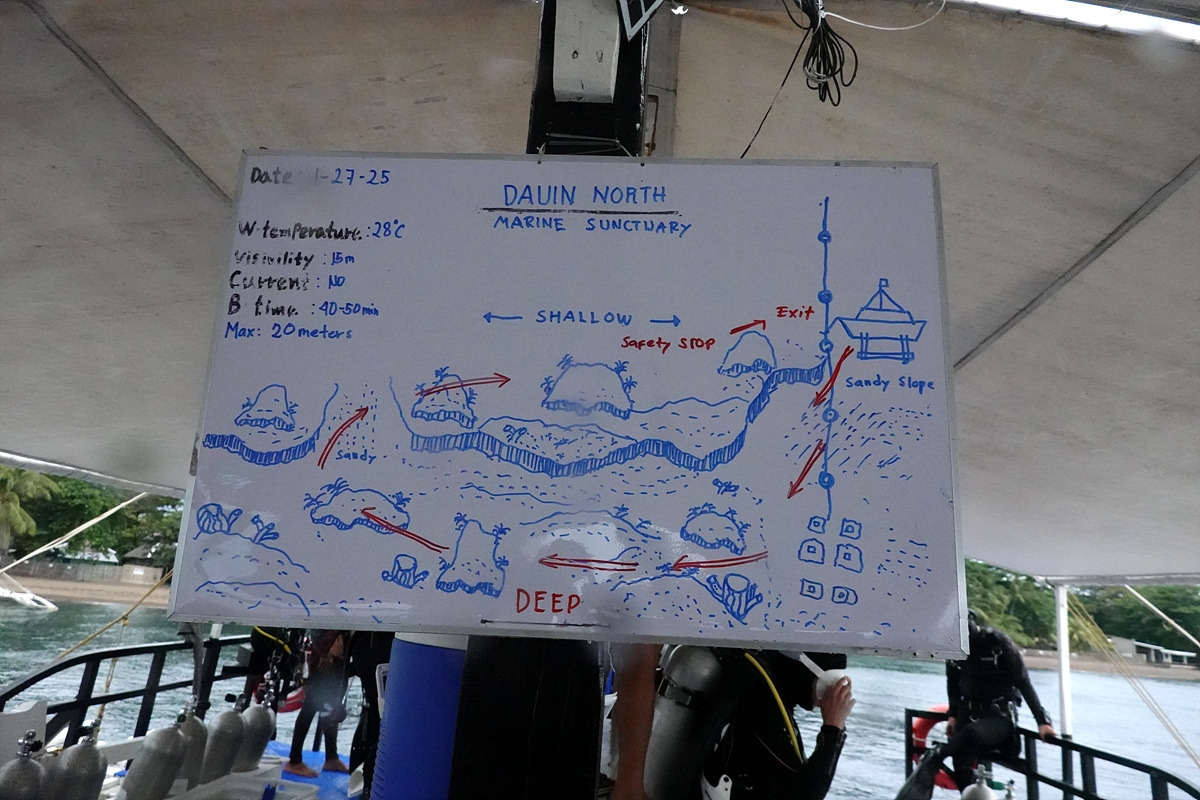 Date 1-27-25
DAUIN NORTH
MARINE SUNCTUARY
W.temperature.: 28°C
Visivility : 15m
Current : NO
B time. : 40-50min
Max: 20 meters
SHALLOW
Safety STOP
Exit
Sandy Slope
Sandy
DEEP